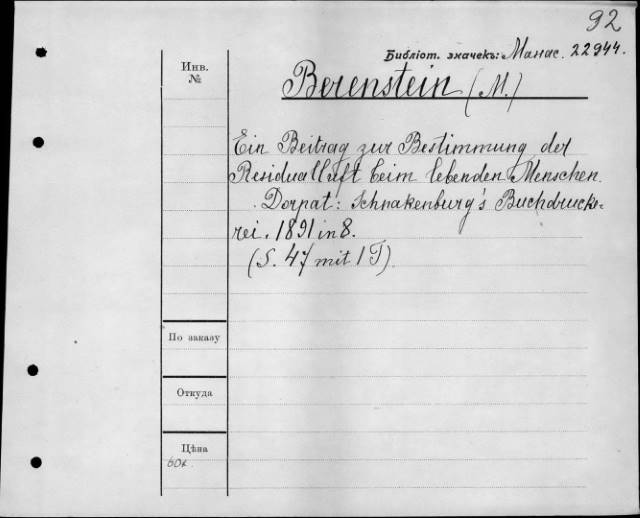 92
Библіот. значекъ: Манас. 22944.
Инв.
№
Berenstein (M.)
Ein Beitrag zur Bestimmung der
Residualluft beim lebenden Menschen.
Dorpat: Schnakenburg's Buchdrucke-
rei. 1891 in 8.
(S. 47 mit 1 T).
По заказу
Откуда
Цѣна
60к.